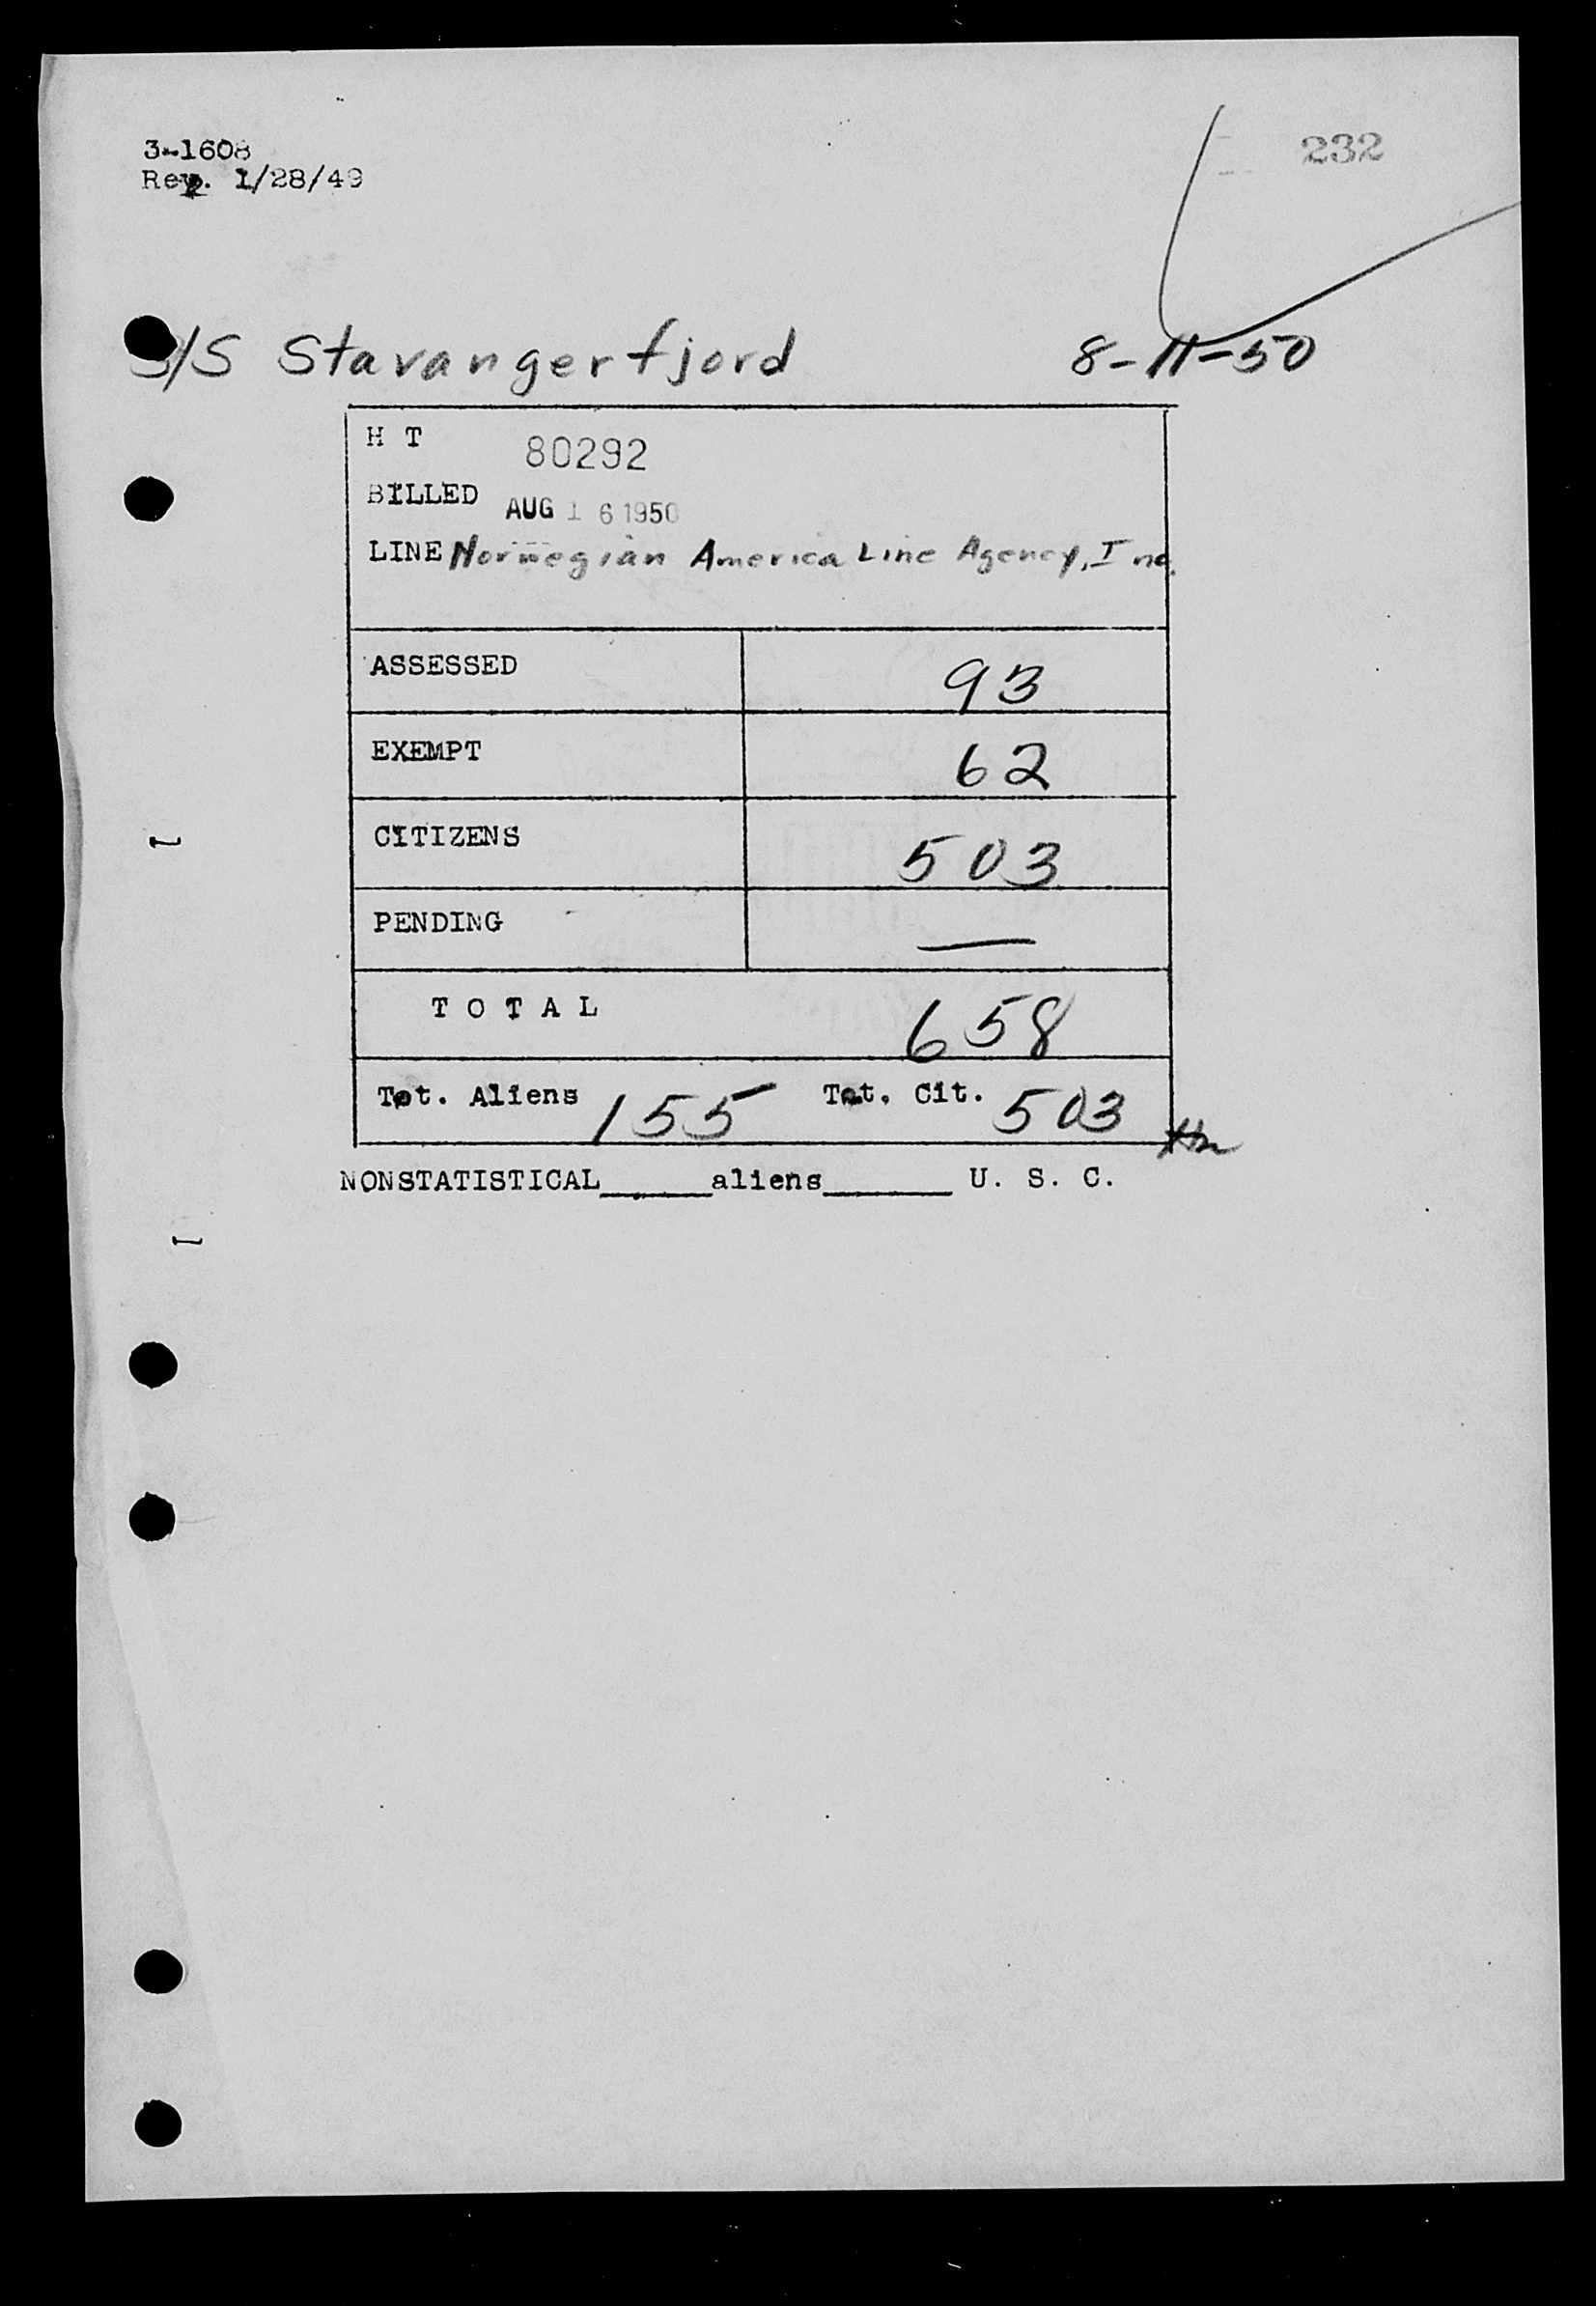 3-1608
232
Rev. 1/28/49
S/S Stavangerfjord 8-11-50
H T 80292
BILLED AUG 16 1950
LINE Norwegian America Line Agency, Inc.
ASSESSED 93
EXEMPT 62
CITIZENS 503
PENDING —
TOTAL 658
Tot. Aliens 155 Tot. Cit. 503
NONSTATISTICAL_____aliens______ U. S. C.